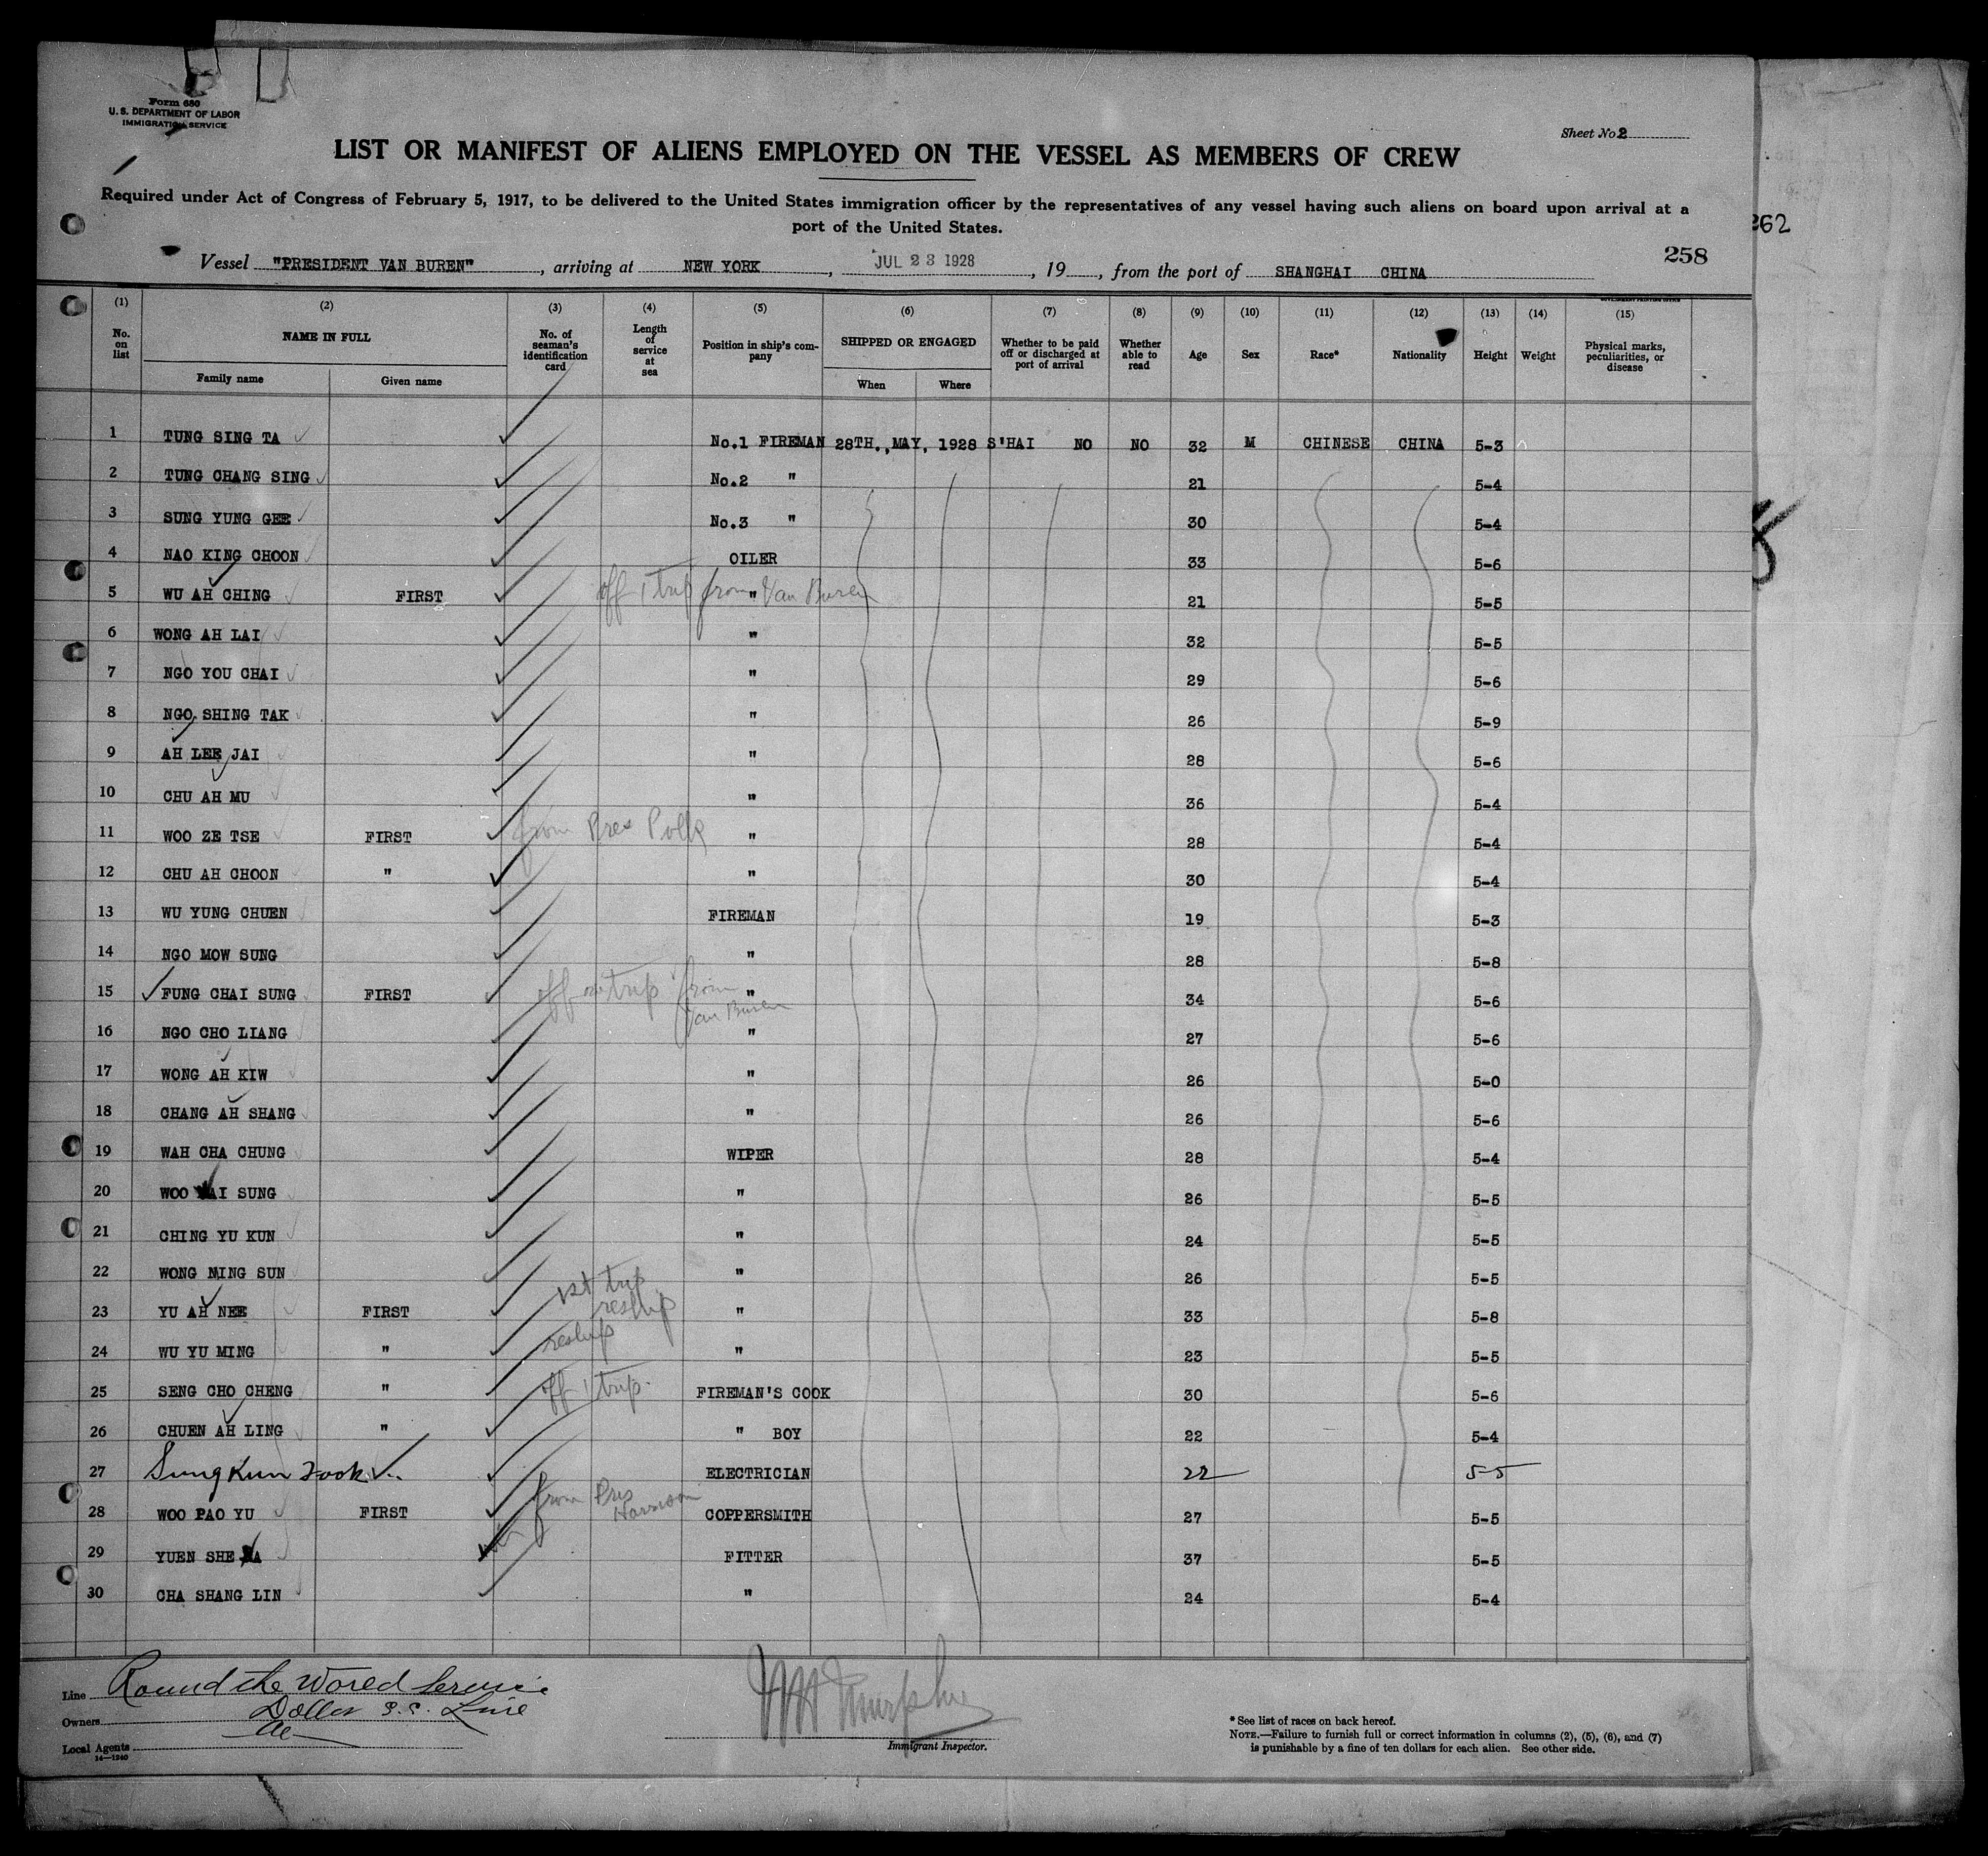 Form 680
U. S. DEPARTMENT OF LABOR
IMMIGRATION SERVICE
Sheet No. 2
LIST OR MANIFEST OF ALIENS EMPLOYED ON THE VESSEL AS MEMBERS OF CREW
Required under Act of Congress of February 5, 1917, to be delivered to the United States immigration officer by the representatives of any vessel having such aliens on board upon arrival at a
port of the United States.
262
258
Vessel "PRESIDENT VAN BUREN", arriving at NEW YORK, JUL 23 1928, 19, from the port of SHANGHAI CHINA
GOVERNMENT PRINTING OFFICE
(1) (2) (3) (4) (5) (6) (7) (8) (9) (10) (11) (12) (13) (14) (15)
No. on list NAME IN FULL No. of seaman's identification card Length of service at sea Position in ship's company SHIPPED OR ENGAGED Whether to be paid off or discharged at port of arrival Whether able to read Age Sex Race* Nationality Height Weight Physical marks, peculiarities, or disease
Family name Given name When Where
1 TUNG SING TA No.1 FIREMAN 28TH.,MAY, 1928 S'HAI NO NO 32 M CHINESE CHINA 5-3
2 TUNG CHANG SING No.2 " 21 5-4
3 SUNG YUNG GEE No.3 " 30 5-4
4 NAO KING CHOON OILER 33 5-6
5 WU AH CHING FIRST off 1 trip from Van Buren " 21 5-5
6 WONG AH LAI " 32 5-5
7 NGO YOU CHAI " 29 5-6
8 NGO SHING TAK " 26 5-9
9 AH LEE JAI " 28 5-6
10 CHU AH MU " 36 5-4
11 WOO ZE TSE FIRST from Pres Polk " 28 5-4
12 CHU AH CHOON " " 30 5-4
13 WU YUNG CHUEN FIREMAN 19 5-3
14 NGO MOW SUNG " 28 5-8
15 FUNG CHAI SUNG FIRST off one trip from Van Buren " 34 5-6
16 NGO CHO LIANG " 27 5-6
17 WONG AH KIW " 26 5-0
18 CHANG AH SHANG " 26 5-6
19 WAH CHA CHUNG WIPER 28 5-4
20 WOO SUNG " 26 5-5
21 CHING YU KUN " 24 5-5
22 WONG MING SUN " 26 5-5
23 YU AH NEE FIRST 1st trip reship " 33 5-8
24 WU YU MING " reship " 23 5-5
25 SENG CHO CHENG " off 1 trip. FIREMAN'S COOK 30 5-6
26 CHUEN AH LING " " BOY 22 5-4
27 Sung Kun Fook ELECTRICIAN 22 5-5
28 WOO PAO YU FIRST from Pres Harrison COPPERSMITH 27 5-5
29 YUEN SHE FITTER 37 5-5
30 CHA SHANG LIN " 24 5-4
Line Round the World Service
Owners Dollar S.S. Line
Local Agents
14—1240
Immigrant Inspector.
* See list of races on back hereof.
NOTE.—Failure to furnish full or correct information in columns (2), (5), (6), and (7)
is punishable by a fine of ten dollars for each alien. See other side.